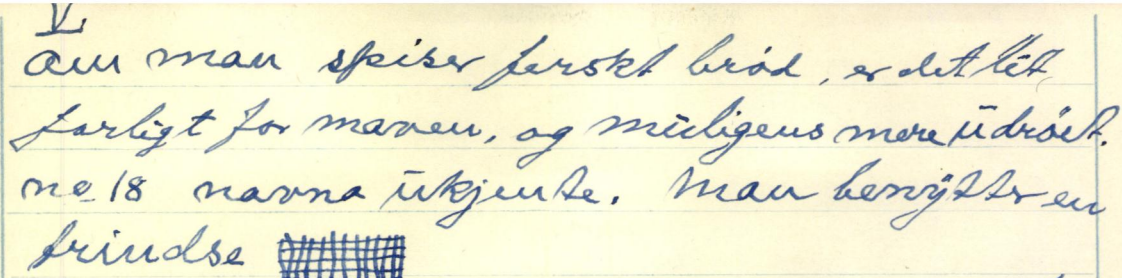 V.
Om man spiser ferskt bröd, er det lit
farligt for maven, og muligens mere udröit.
no 18 navna ukjente. Man benytter en
trindse